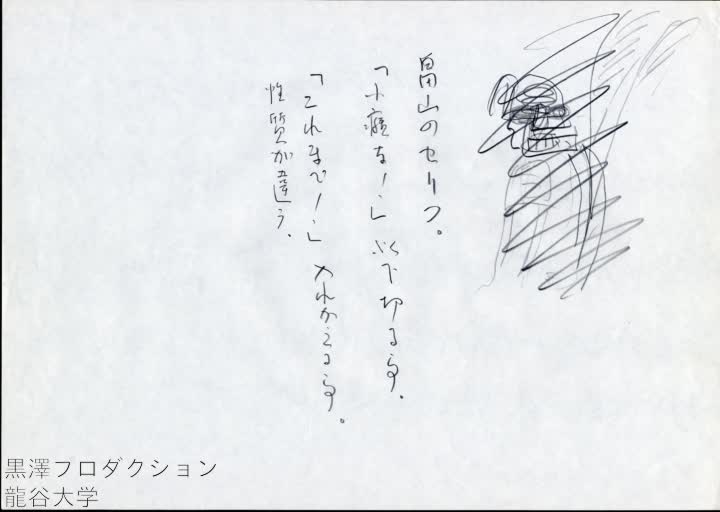 畠山のセリフ。
「小癪な！」以下切る事。
「これまで！」入れかえる事。
性質が違う、
黒澤フロダクション
龍谷大学